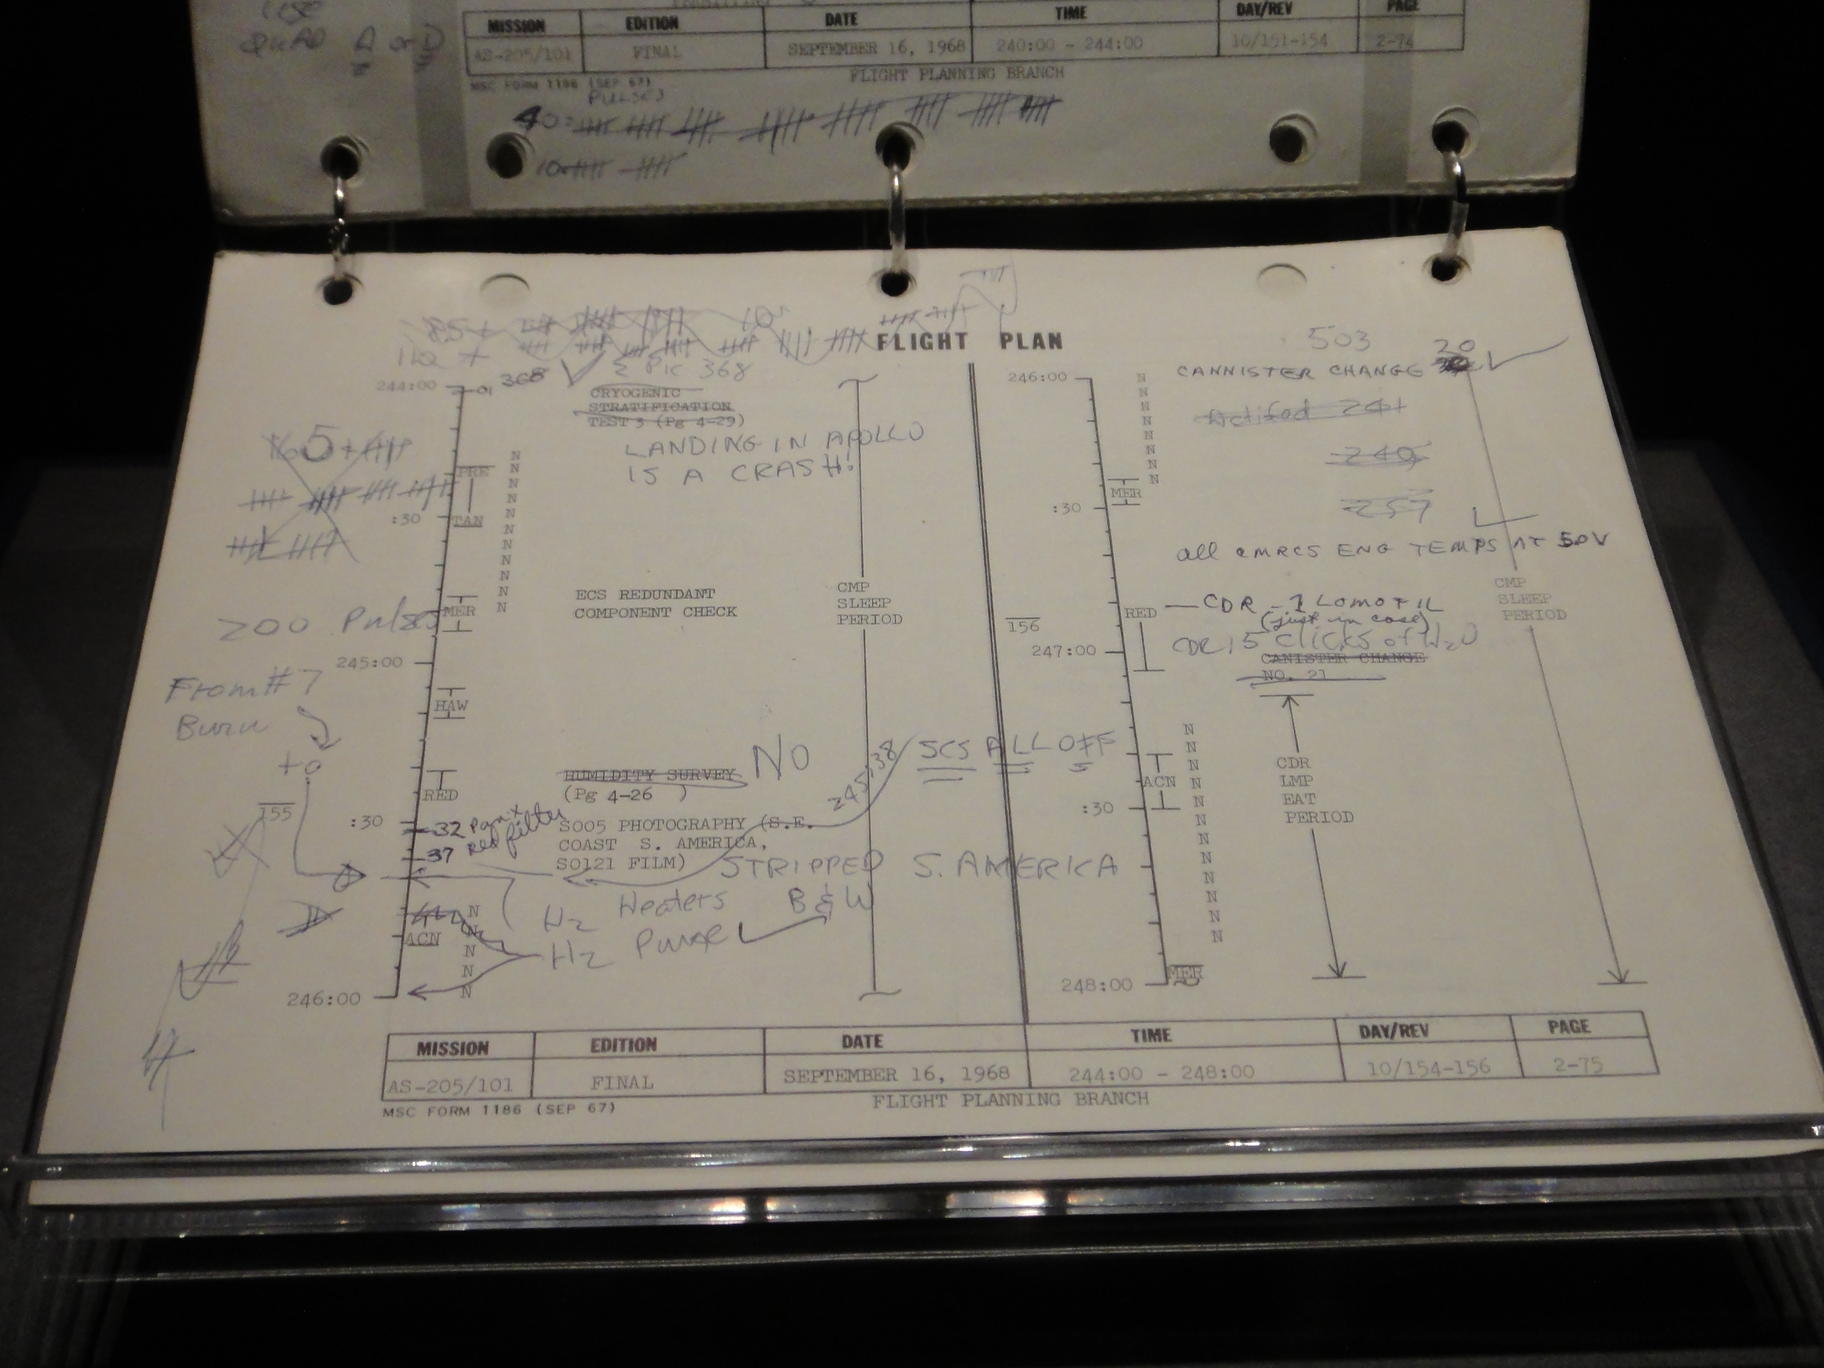 USE
QUAD A or D
MISSION EDITION DATE TIME DAY/REV PAGE
AS-205/101 FINAL SEPTEMBER 16, 1968 240:00 - 244:00 10/151-154 2-74
MSC FORM 1186 (SEP 67) FLIGHT PLANNING BRANCH
PULSES
40
10
85+ 10
112 +
FLIGHT PLAN
503
Σ Pic 368
CANNISTER CHANGE 20
244:00 01 368
246:00
CRYOGENIC
STRATIFICATION
TEST 3 (Pg 4-29)
Actifed 241
LANDING IN APOLLO
IS A CRASH!
240
PRE
TAN
:30
MER
:30
257
all CMRCS ENG TEMPS AT 5.0V
ECS REDUNDANT
COMPONENT CHECK
CMP
SLEEP
PERIOD
CMP
SLEEP
PERIOD
MER
200 Pulses
RED
CDR - 1 LOMOTIL
(just in case)
156
245:00
247:00
CDR 15 Clicks of H2O
CANISTER CHANGE
NO. 21
From #7
Burn
+0
HAW
NO
SCS ALL OFF
HUMIDITY SURVEY
(Pg 4-26 )
245:38
RED
ACN
CDR
LMP
EAT
PERIOD
155
:30
:30
32 Pan X
Red filter
37
S005 PHOTOGRAPHY (S.E.
COAST S. AMERICA,
SO121 FILM)
STRIPPED S. AMERICA
B & W
H2 Heaters
H2 Purge
ACN
N
N
N
N
N
246:00
248:00
MER
MISSION EDITION DATE TIME DAY/REV PAGE
AS-205/101 FINAL SEPTEMBER 16, 1968 244:00 - 248:00 10/154-156 2-75
MSC FORM 1186 (SEP 67) FLIGHT PLANNING BRANCH